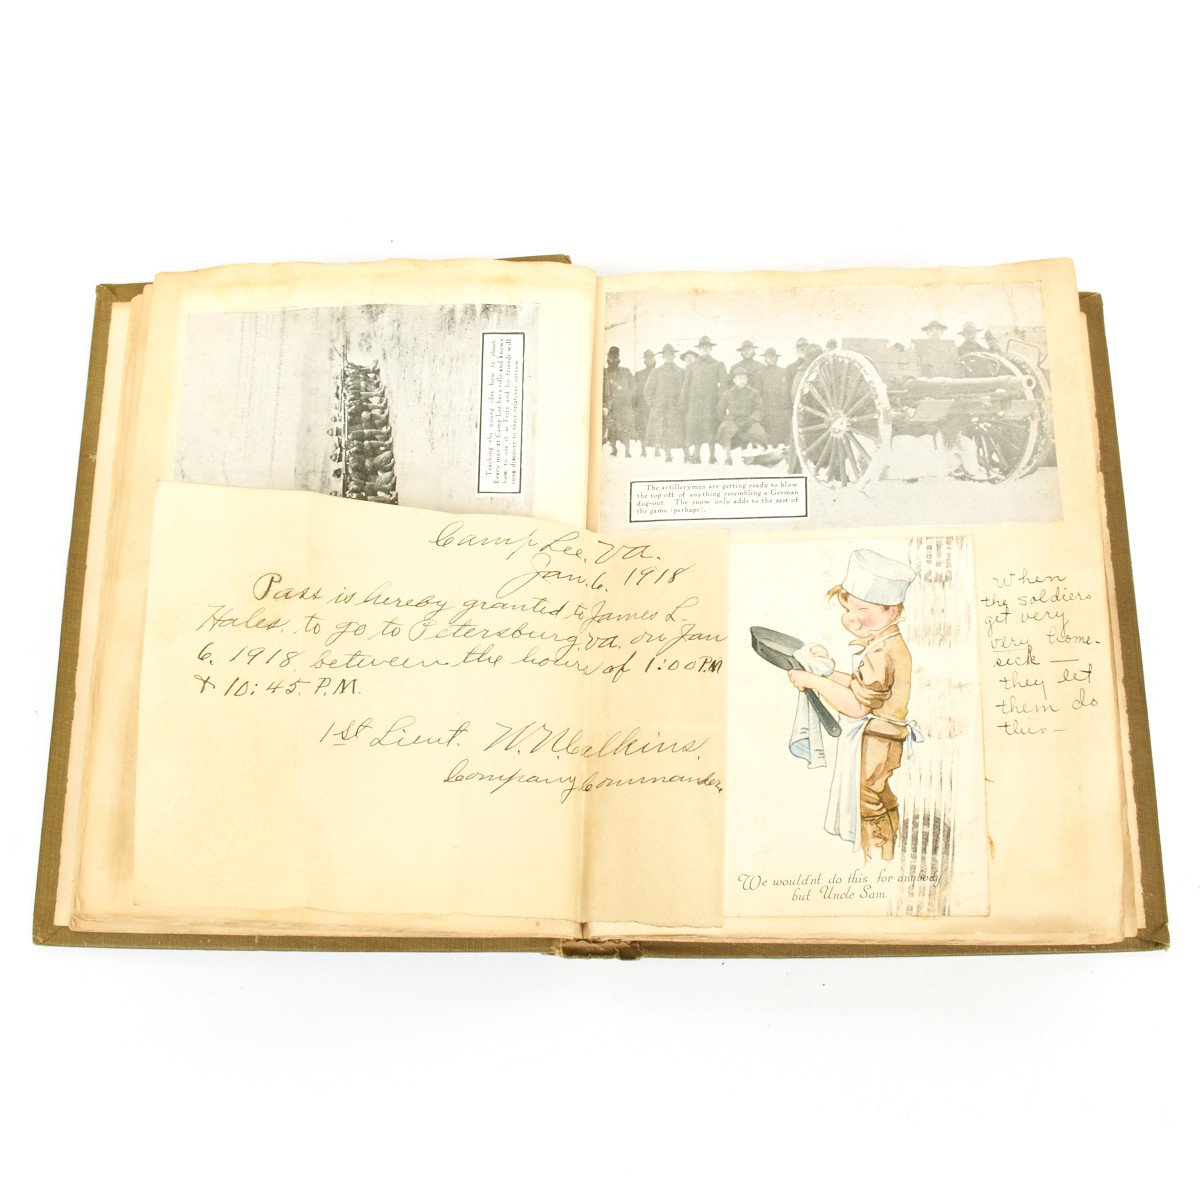 Teaching the young idea how to shoot.
Every man at Camp Lee has a rifle and knows
how to use it as Fritz and his friends will
soon discover to their relatives sorrow.
The artillerymen are getting ready to blow
the top off of anything resembling a German
dug-out. The snow only adds to the zest of
the game (perhaps).
Camp Lee, Va.
Jan. 6, 1918
Pass is hereby granted to James L.
Hales, to go to Petersburg, Va. on Jan
6, 1918, between the hours of 1:00 P.M
& 10:45 P.M.
1st Lieut.
Company Commander.
We wouldnt do this for anybody
but Uncle Sam.
When
the soldiers
get very
very home-
sick —
they let
them do
this —